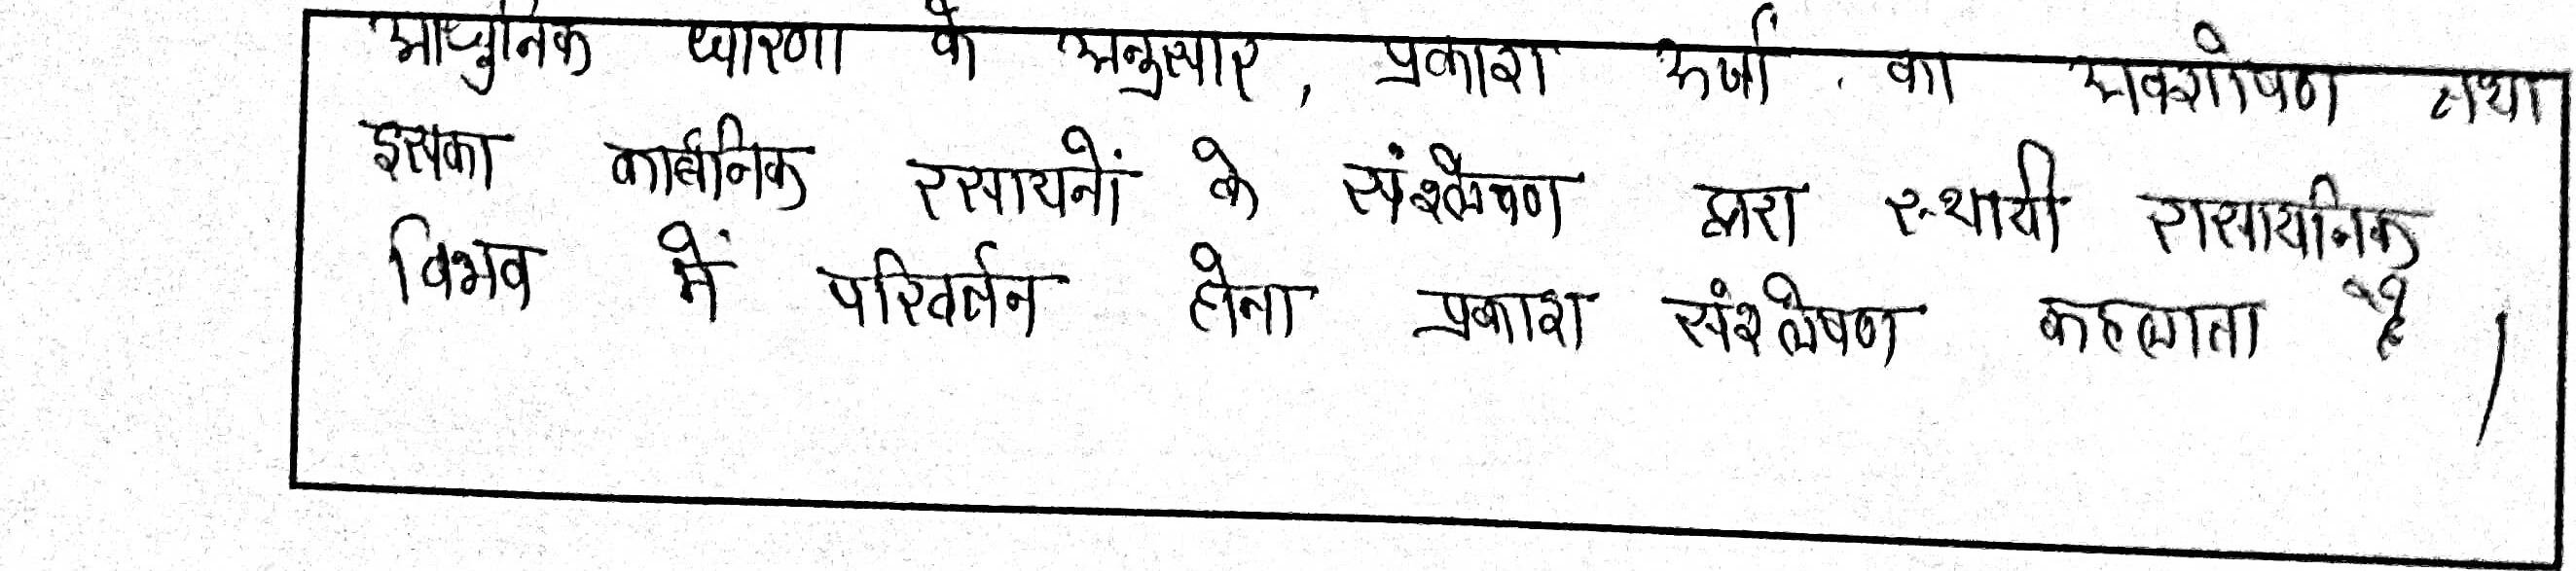 आधुनिक धारणा के अनुसार, प्रकाश ऊर्जा का अवशोषण तथा
इसका कार्बनिक रसायनों के संश्लेषण द्वारा स्थायी रासायनिक
विभव में परिवर्तन होना प्रकाश संश्लेषण कहलाता है।